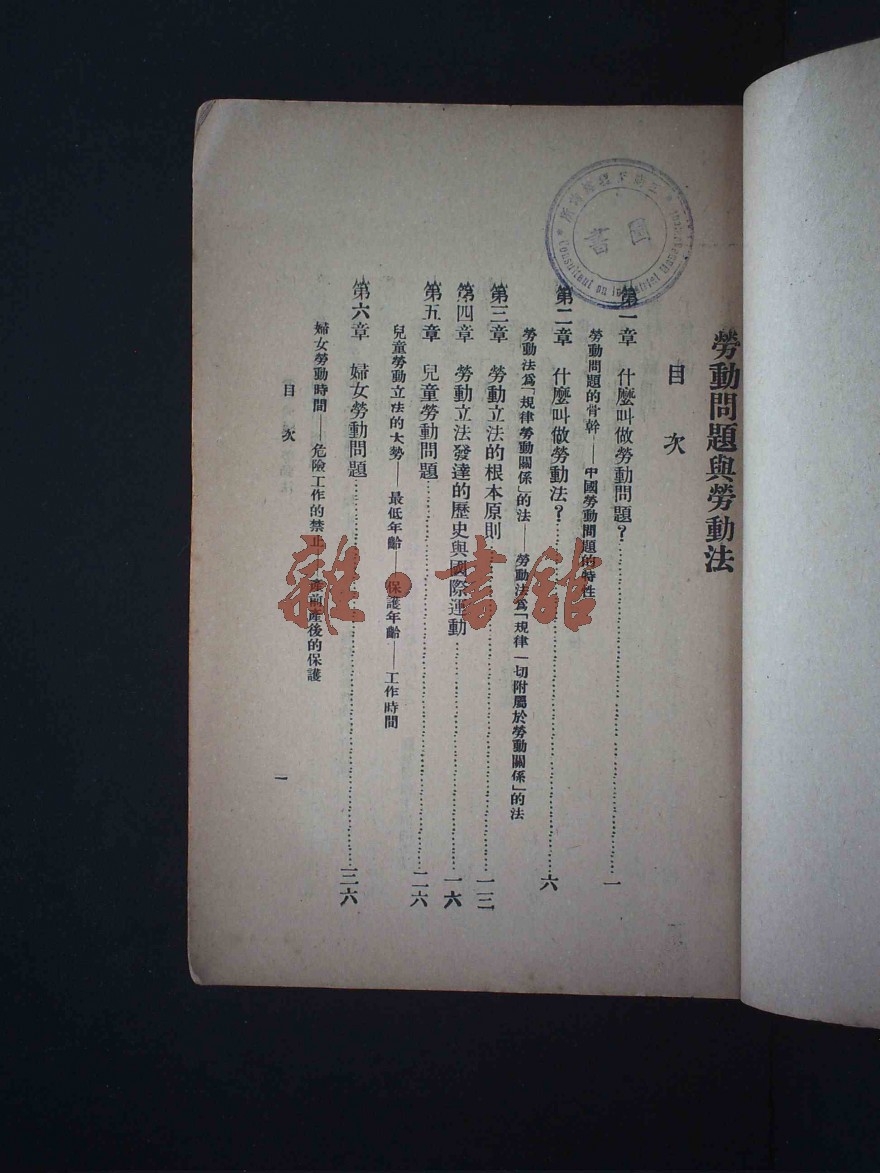 勞動問題與勞動法
目次
第一章 什麼叫做勞動問題?……一
勞動問題的骨幹——中國勞動問題的特性
第二章 什麼叫做勞動法?……六
勞動法爲「規律勞動關係」的法——勞動法爲「規律一切附屬於勞動關係」的法
第三章 勞動立法的根本原則……一三
第四章 勞動立法發達的歷史與國際運動……一六
第五章 兒童勞動問題……二六
兒童勞動立法的大勢——最低年齡——保護年齡——工作時間
第六章 婦女勞動問題……三六
婦女勞動時間——危險工作的禁止——產前產後的保護
目次
一
圖書
Consultant on Industrial
雜·書館